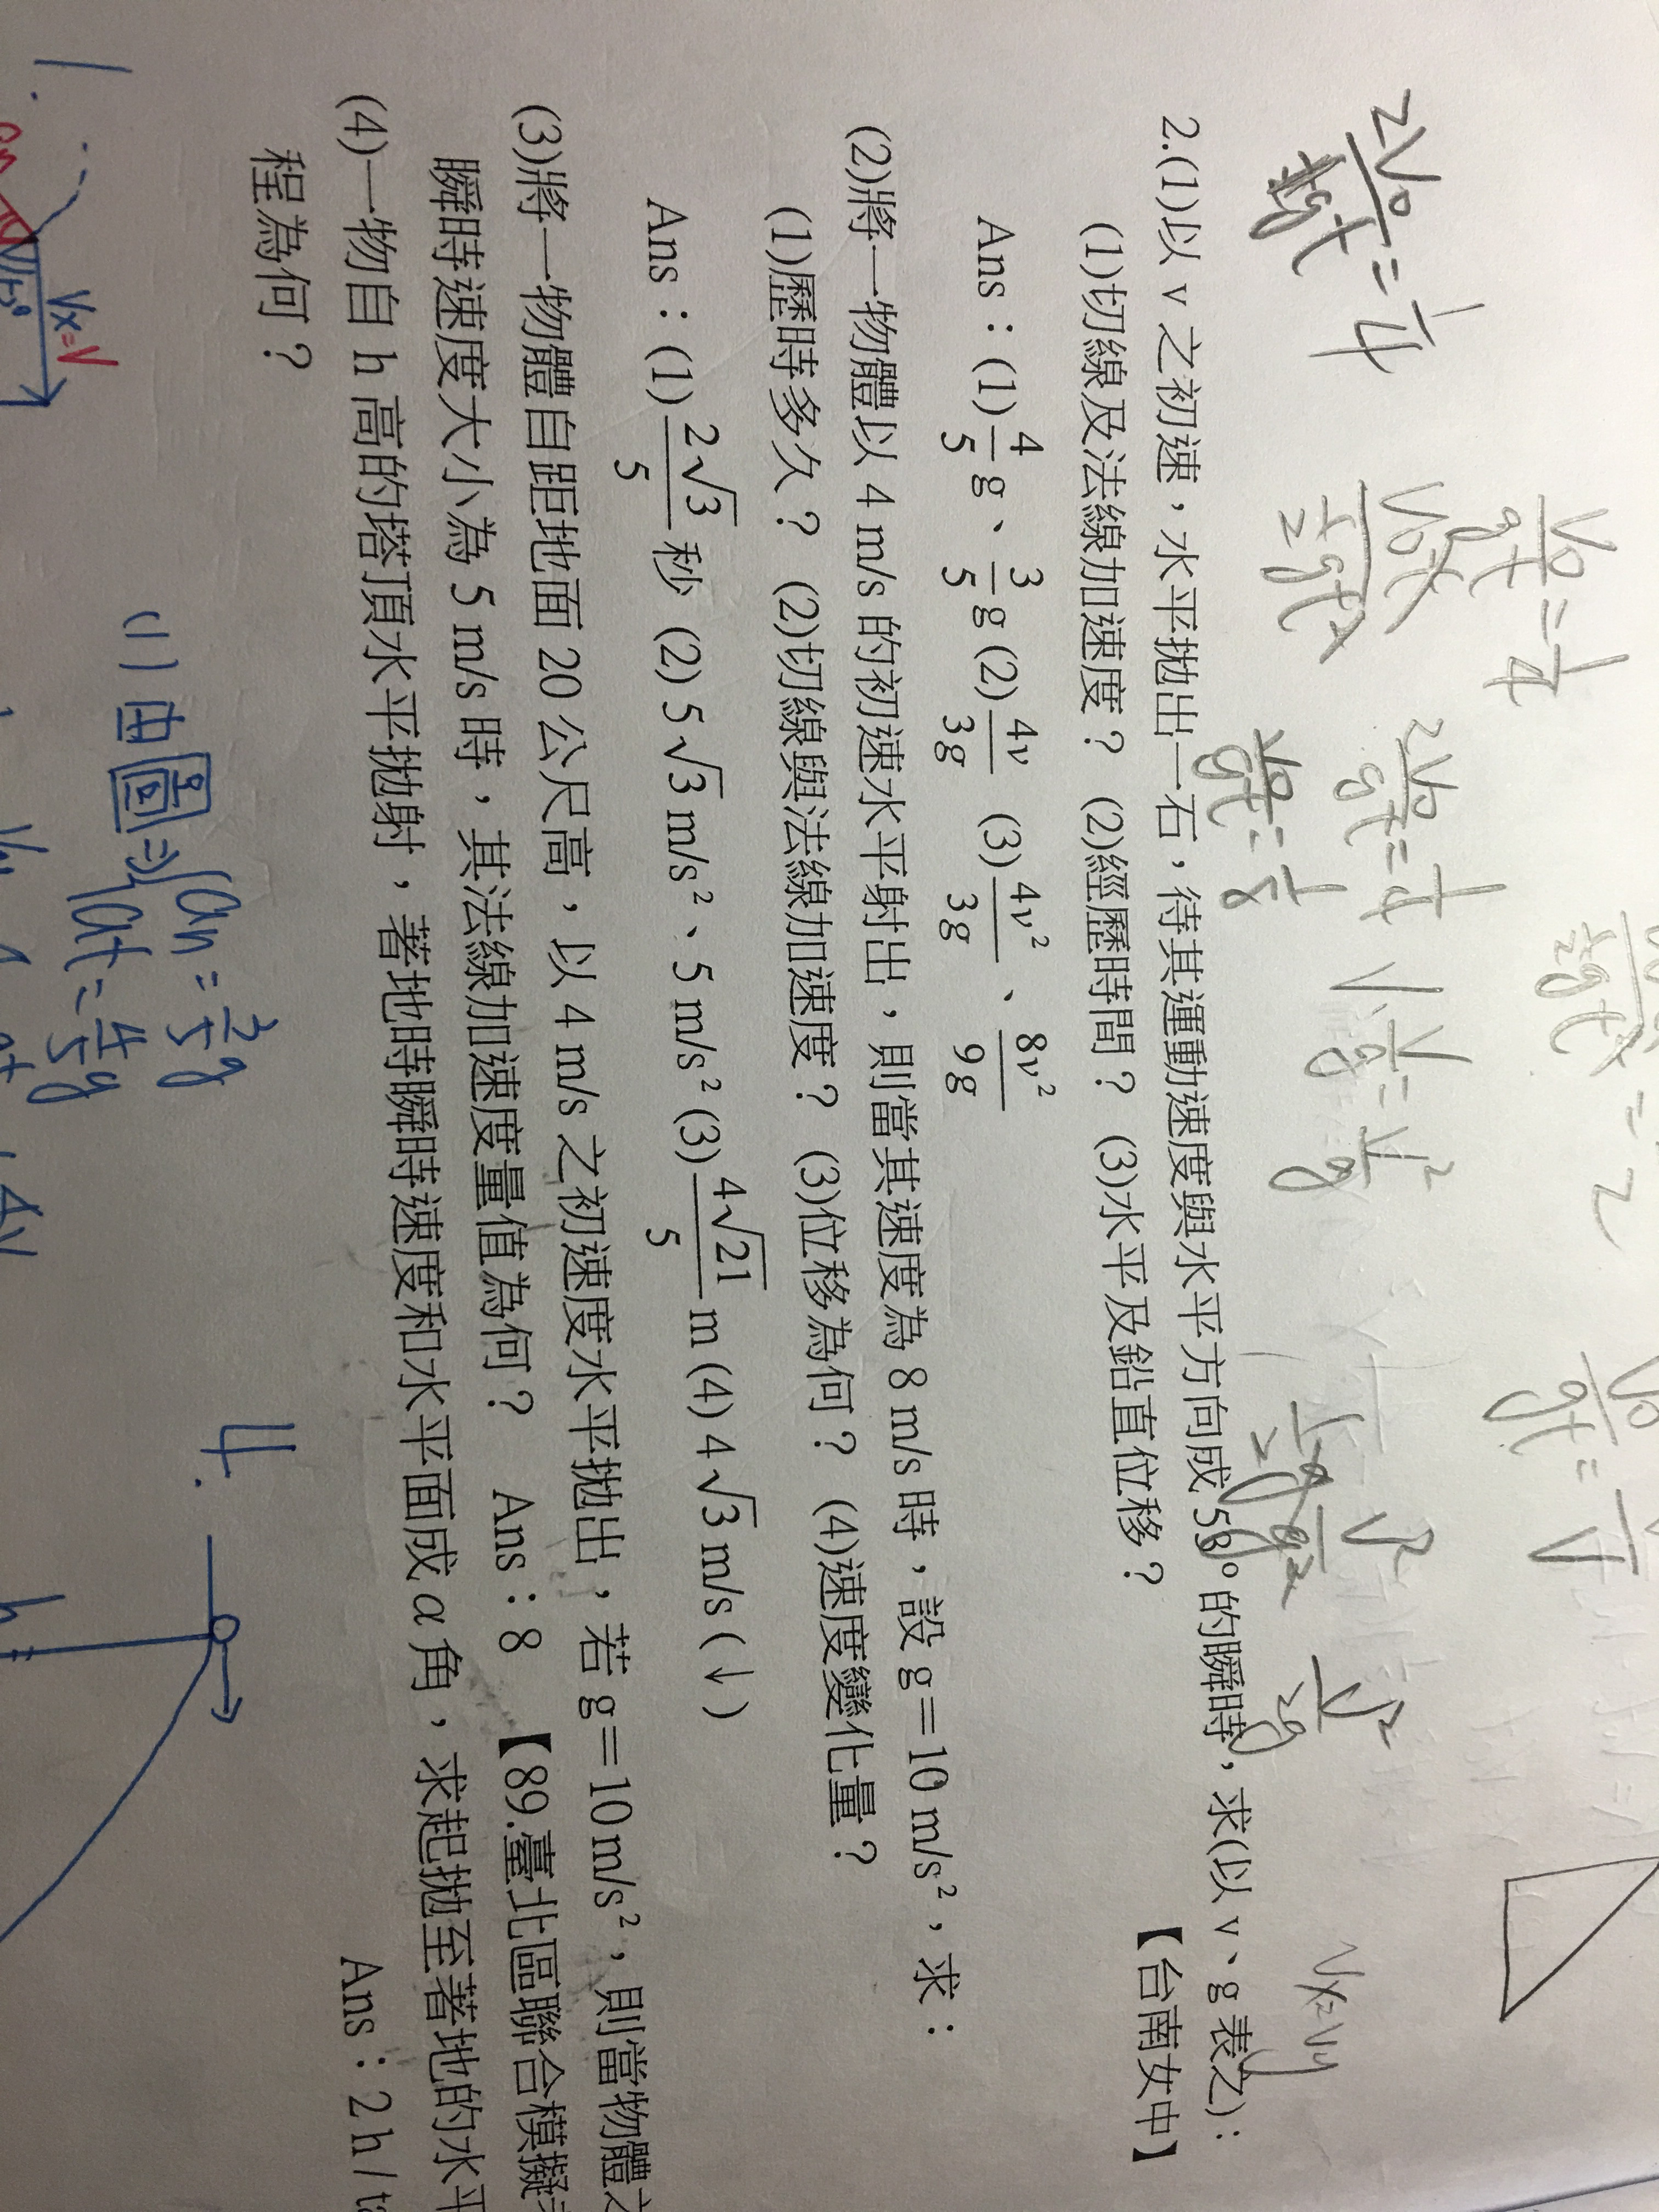 2V₀/gt = 1/4
V₀/gt = 1/4
V₀t / ½gt²
2V₀/gt = 1/4
V₀/gt = 1/8
V · V/g = V²/g
½g V²/g²
V²/2g
Vx=Vy
2.(1)以 v 之初速，水平拋出一石，待其運動速度與水平方向成 53°的瞬時，求(以 v、g 表之)：
(1)切線及法線加速度？ (2)經歷時間？ (3)水平及鉛直位移？ 【台南女中】
Ans：(1) 4/5 g、3/5 g (2) 4v/3g (3) 4v²/3g、8v²/9g
(2)將一物體以 4 m/s 的初速水平射出，則當其速度為 8 m/s 時，設 g＝10 m/s²，求：
(1)歷時多久？ (2)切線與法線加速度？ (3)位移為何？ (4)速度變化量？
Ans：(1) 2√3/5 秒 (2) 5√3 m/s²、5 m/s² (3) 4√21/5 m (4) 4√3 m/s (↓)
(3)將一物體自距地面 20 公尺高，以 4 m/s 之初速度水平拋出，若 g＝10 m/s²，則當物體之
瞬時速度大小為 5 m/s 時，其法線加速度量值為何？ Ans：8 【89.臺北區聯合模擬
(4)一物自 h 高的塔頂水平拋射，著地時瞬時速度和水平面成 α 角，求起拋至著地的水平
程為何？ Ans：2 h / t
1.
Vx=V
(1) 由圖⇒ an = 3/5 g
at = 4/5 g
4.
h